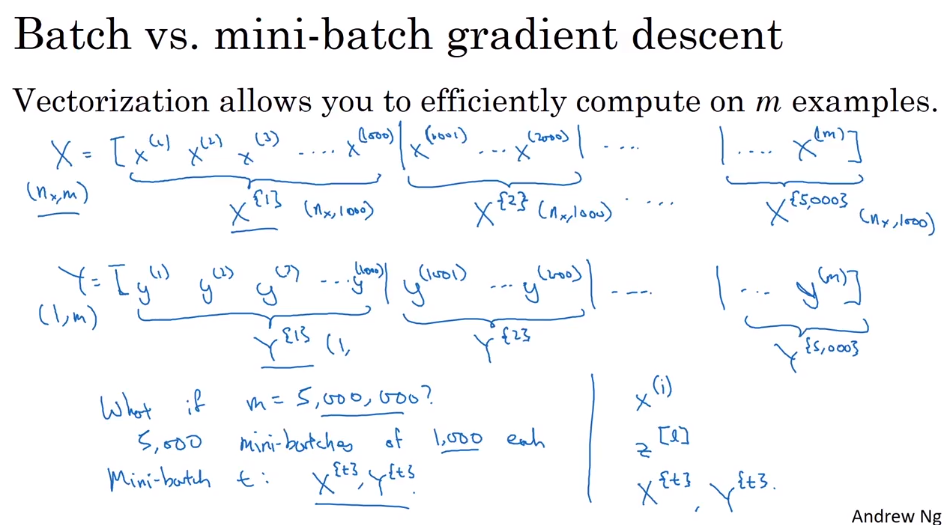 Batch vs. mini-batch gradient descent
Vectorization allows you to efficiently compute on m examples.
X = [ x^(1) x^(2) x^(3) .... x^(1000) | x^(1001) ... x^(2000) | .... | .... x^(m) ]
(n_x, m) X^{1} (n_x, 1000) X^{2} (n_x, 1000) .... X^{5,000} (n_x, 1000)
Y = [ y^(1) y^(2) y^(3) ... y^(1000) | y^(1001) ... y^(2000) | .... | ... y^(m) ]
(1, m) Y^{1} (1, Y^{2} Y^{5,000}
What if m = 5,000,000?
5,000 mini-batches of 1,000 each
Mini-batch t: X^{t}, Y^{t}.
x^(i)
z^[l]
X^{t}, Y^{t}.
Andrew Ng